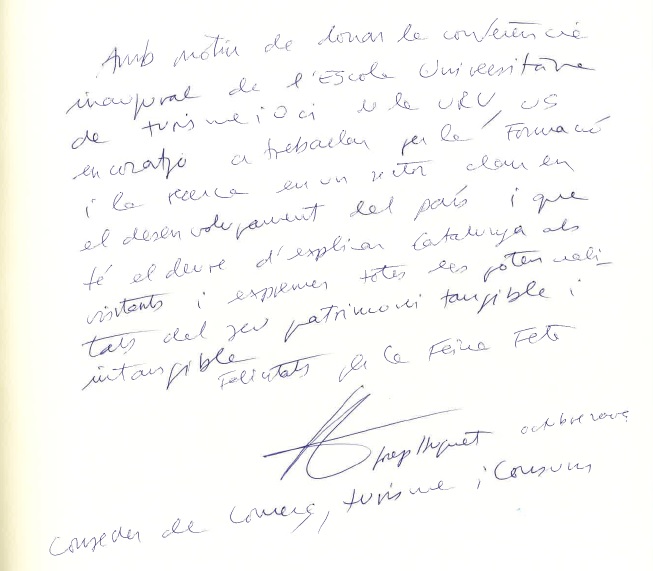 Amb motiu de donar la conferència
inaugural de l'Escola Universitària
de turisme i Oci de la URV, us
encoratjo a treballar per la Formació
i la recerca en un sector clau en
el desenvolupament del país i que
té el deure d'explicar Catalunya als
visitants i exprimer totes les potenciali-
tats del seu patrimoni tangible i
intangible Felicitats per la Feina Feta
Josep Huguet octubre 2009
Conseller de Comerç, turisme i Consum